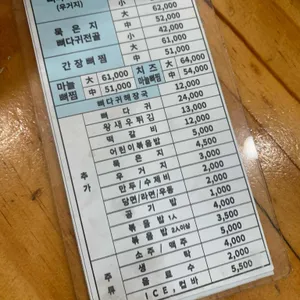 (우거지) 小 52,000
大 62,000
묵 은 지 中 52,000
뼈다귀전골 小 42,000
간 장 뼈 찜 大 61,000
中 51,000
마늘 뼈찜 大 61,000 치즈 마늘뼈찜 大 64,000
中 51,000 中 54,000
뼈다귀해장국 12,000
뼈 다 귀 24,000
왕새우튀김 13,000
떡 갈 비 12,000
어린이볶음밥 5,000
묵 은 지 4,500
우 거 지 3,000
만두/수제비 2,000
당면/라면/우동 2,000
공 기 밥 1,000
볶 음 밥 1人 4,000
볶 음 밥 2人이상 3,500
소주/맥주 5,000
생 탁 4,000
음 료 수 2,000
ICE, 컵바 5,500
추 가
주 류